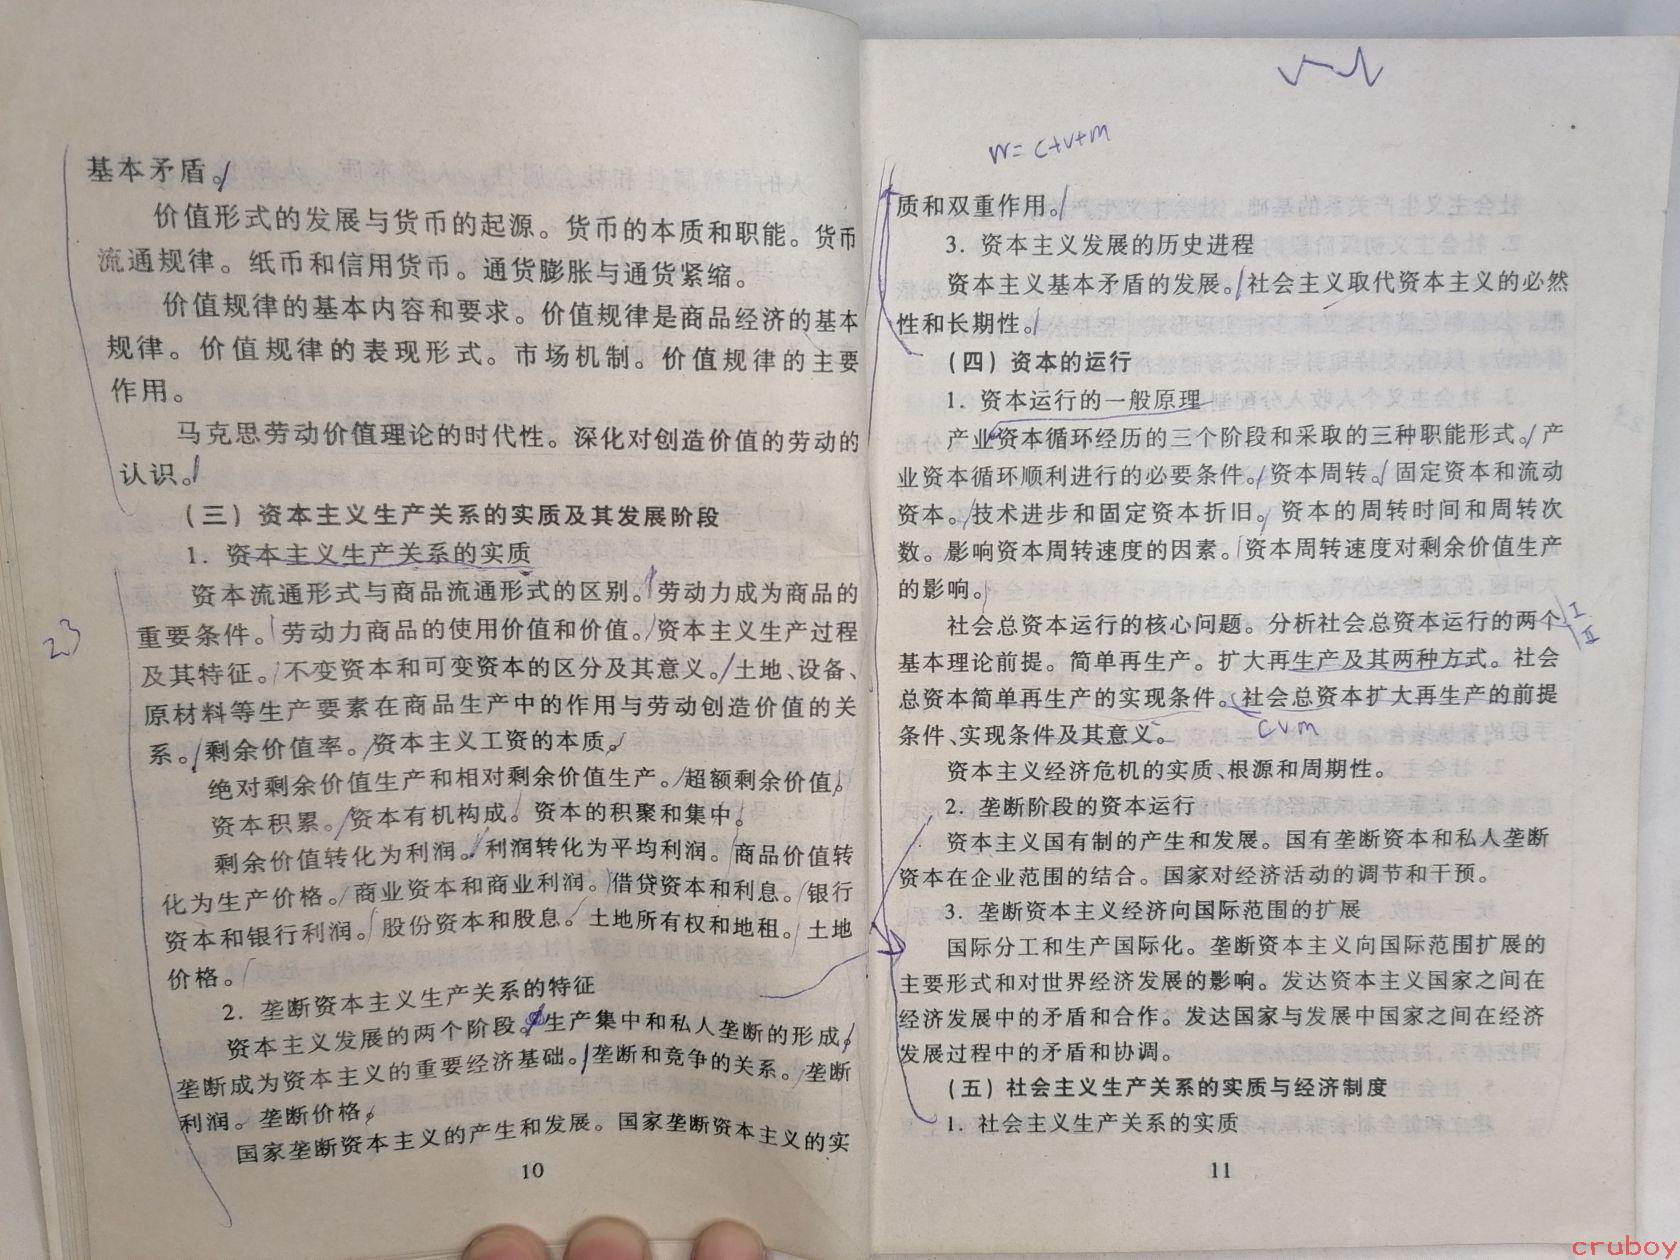 基本矛盾。
价值形式的发展与货币的起源。货币的本质和职能。货币
流通规律。纸币和信用货币。通货膨胀与通货紧缩。
价值规律的基本内容和要求。价值规律是商品经济的基本
规律。价值规律的表现形式。市场机制。价值规律的主要
作用。
马克思劳动价值理论的时代性。深化对创造价值的劳动的
认识。
（三）资本主义生产关系的实质及其发展阶段
1．资本主义生产关系的实质
资本流通形式与商品流通形式的区别。劳动力成为商品的
重要条件。劳动力商品的使用价值和价值。资本主义生产过程
及其特征。不变资本和可变资本的区分及其意义。土地、设备、
原材料等生产要素在商品生产中的作用与劳动创造价值的关
系。剩余价值率。资本主义工资的本质。
绝对剩余价值生产和相对剩余价值生产。超额剩余价值。
资本积累。资本有机构成。资本的积聚和集中。
剩余价值转化为利润。利润转化为平均利润。商品价值转
化为生产价格。商业资本和商业利润。借贷资本和利息。银行
资本和银行利润。股份资本和股息。土地所有权和地租。土地
价格。
2．垄断资本主义生产关系的特征
资本主义发展的两个阶段。生产集中和私人垄断的形成。
垄断成为资本主义的重要经济基础。垄断和竞争的关系。垄断
利润。垄断价格。
国家垄断资本主义的产生和发展。国家垄断资本主义的实
10
23
W=C+V+m
质和双重作用。
3．资本主义发展的历史进程
资本主义基本矛盾的发展。社会主义取代资本主义的必然
性和长期性。
（四）资本的运行
1．资本运行的一般原理
产业资本循环经历的三个阶段和采取的三种职能形式。产
业资本循环顺利进行的必要条件。资本周转。固定资本和流动
资本。技术进步和固定资本折旧。资本的周转时间和周转次
数。影响资本周转速度的因素。资本周转速度对剩余价值生产
的影响。
社会总资本运行的核心问题。分析社会总资本运行的两个
I
II
基本理论前提。简单再生产。扩大再生产及其两种方式。社会
总资本简单再生产的实现条件。社会总资本扩大再生产的前提
CVm
条件、实现条件及其意义。
资本主义经济危机的实质、根源和周期性。
2．垄断阶段的资本运行
资本主义国有制的产生和发展。国有垄断资本和私人垄断
资本在企业范围的结合。国家对经济活动的调节和干预。
3．垄断资本主义经济向国际范围的扩展
国际分工和生产国际化。垄断资本主义向国际范围扩展的
主要形式和对世界经济发展的影响。发达资本主义国家之间在
经济发展中的矛盾和合作。发达国家与发展中国家之间在经济
发展过程中的矛盾和协调。
（五）社会主义生产关系的实质与经济制度
1．社会主义生产关系的实质
11
cruboy